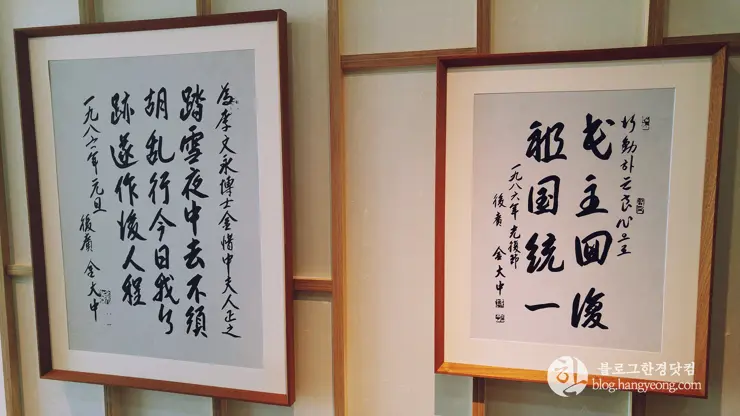 為李文永博士金惜中夫人正之
踏雪夜中去不須
胡乱行今日我行
跡遂作後人程
一九八六年元旦 後廣 金大中
行動하는 良心으로
民主回復
祖国統一
一九八六年 光復節
後廣 金大中
블로그한경닷컴
blog.hangyeong.com